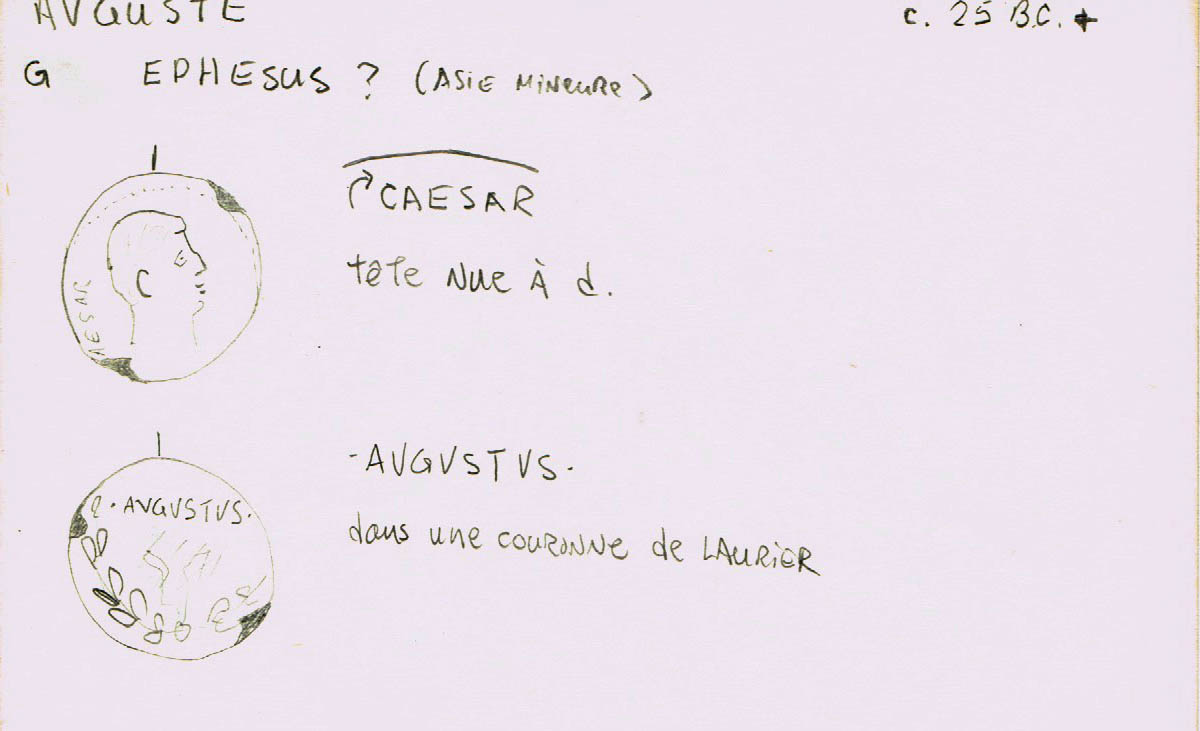 AVGUSTE c. 25 B.C. +
G EPHESUS ? (ASIE MINEURE)
CAESAR
tête NUE À d.
AESAR
-AVGVSTVS.
· AVGVSTVS.
dans une couronne de LAURIER